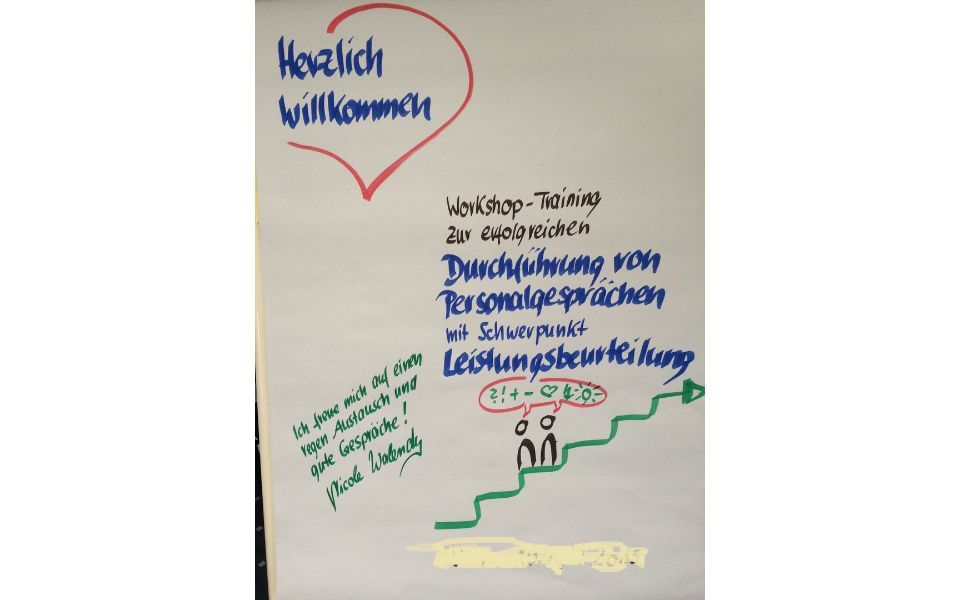 Herzlich
Willkommen
Workshop-Training
zur erfolgreichen
Durchführung von
Personalgesprächen
mit Schwerpunkt
Leistungsbeurteilung
?!+-
Ich freue mich auf einen
regen Austausch und
gute Gespräche!
Nicole Walendy